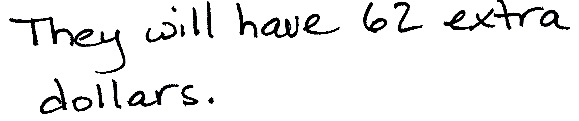 They will have 62 extra
dollars.